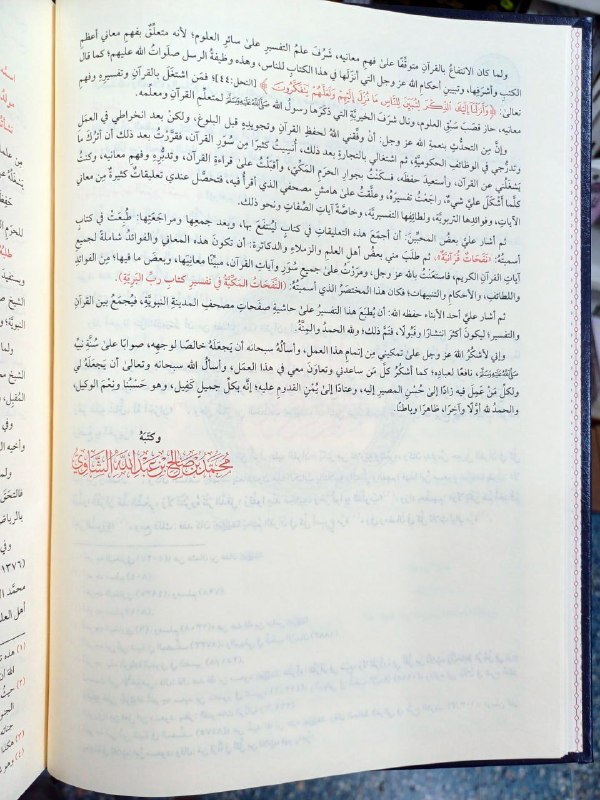 ولما كان الانتفاعُ بالقرآنِ متوقِّفًا علىٰ فهمِ معانيه، شَرُفَ علمُ التفسيرِ علىٰ سائرِ العلومِ؛ لأنه متعلِّقٌ بفهمِ معاني أعظمِ
الكتبِ وأشرَفِها، وتبيينِ أحكام الله عز وجل التي أنزَلَها في هذا الكتابِ للناس، وهذه وظيفةُ الرسل صلَواتُ الله عليهم؛ كما قال
تعالىٰ: ﴿وَأَنزَلْنَا إِلَيْكَ الذِّكْرَ لِتُبَيِّنَ لِلنَّاسِ مَا نُزِّلَ إِلَيْهِمْ وَلَعَلَّهُمْ يَتَفَكَّرُونَ﴾ [النحل:٤٤]؛ فمَن اشتغَلَ بالقرآنِ وتفسيرِه وفهمِ
معانيه، حاز قصَبَ سَبْقِ العلومِ، ونال شرَفَ الخيريَّةِ التي ذكَرَها رسولُ الله ﷺ لمتعلِّمِ القرآنِ ومعلِّمِه.
وإنَّ مِن التحدُّثِ بنعمةِ الله عز وجل: أنْ وفَّقني اللهُ لحفظِ القرآنِ وتجويدِهِ قبل البلوغِ، ولكنْ بعد انخراطي في العمَلِ
وتدرُّجي في الوظائفِ الحكوميَّةِ، ثم اشتغالي بالتجارةِ بعد ذلك، أُنسِيتُ كثيرًا مِن سُوَرِ القرآنِ، فقرَّرْتُ بعد ذلك أن أترُكَ ما
يَشغَلُني عن القرآن، وأستعيدَ حفظَه، فسكَنْتُ بجوارِ الحرَمِ المكِّيِّ، وأقبَلْتُ علىٰ قراءةِ القرآنِ، وتدبُّرِهِ وفهمِ معانيه، وكنتُ
كلَّما أشكَلَ عليَّ شيءٌ، راجَعْتُ تفسيرَهُ، وعلَّقْتُ علىٰ هامشِ مصحَفي الذي أقرأُ فيه، فتحصَّل عندي تعليقاتٌ كثيرةٌ مِن معاني
الآياتِ، وفوائدِها التربويَّةِ، ولطائفِها التفسيريَّة، وخاصَّةً آياتِ الصِّفاتِ ونحوِ ذلك.
ثم أشار عليَّ بعضُ المحِبِّينَ: أن أجمَعَ هذه التعليقاتِ في كتابٍ ليُنتفَعَ بها، وبعد جمعِها ومراجَعتِها: طُبِعَتْ في كتابٍ
أسمَيْتُهُ: «نَفَحَاتٌ قُرْآنيَّةٌ»، ثم طلَبَ مني بعضُ أهلِ العلمِ والزملاءِ والدكاترة: أن تكونَ هذه المعاني والفوائدُ شاملةً لجميعِ
آياتِ القرآنِ الكريم، فاستعَنْتُ بالله عز وجل، ومرَرْتُ علىٰ جميعِ سُوَرِ وآياتِ القرآن، مبيِّنًا معانيَها، وبعضَ ما فيها: مِن الفوائدِ
واللطائفِ، والأحكامِ والتنبيهات؛ فكان هذا المختصَرُ الذي أسمَيْتُهُ: (النَّفَحَاتُ المَكِّيَّةُ في تفسيرِ كتابِ ربِّ البَرِيَّةِ).
ثم أشار عليَّ أحد الأبناء حفظه الله: أن يُطبَعَ هذا التفسيرُ علىٰ حاشيةِ صفَحاتِ مصحَفِ المدينةِ النبويَّةِ، فيُجمَعُ بين القرآنِ
والتفسير؛ ليكونَ أكثرَ انتشارًا وقَبُولًا، فتَمَّ ذلك؛ ولله الحمدُ والمِنَّةُ.
وإني لَأشكُرُ اللهَ عز وجل علىٰ تمكيني مِن إتمامِ هذا العمل، وأسألُهُ سبحانه أن يَجعَلَهُ خالصًا لوجهِهِ، صوابًا علىٰ سُنَّةِ نبيِّهِ
ﷺ، نافعًا لعبادِه؛ كما أشكُرُ كلَّ مَن ساعَدني وتعاوَنَ معي في هذا العمَلِ، وأسألُ اللهَ سبحانه وتعالىٰ أن يَجعَلَهُ لي
ولكلِّ مَنْ عَمِلَ فيه زادًا إلىٰ حُسْنِ المصيرِ إليه، وعتادًا إلىٰ يُمْنِ القدومِ عليه؛ إنَّه بكلِّ جميلٍ كَفِيل، وهو حَسْبُنا ونِعْمَ الوكيل،
والحمدُ لله أوَّلًا وآخِرًا، ظاهرًا وباطنًا.
وكتَبَهُ
محمد بن صالح بن عبد الله الشاوي